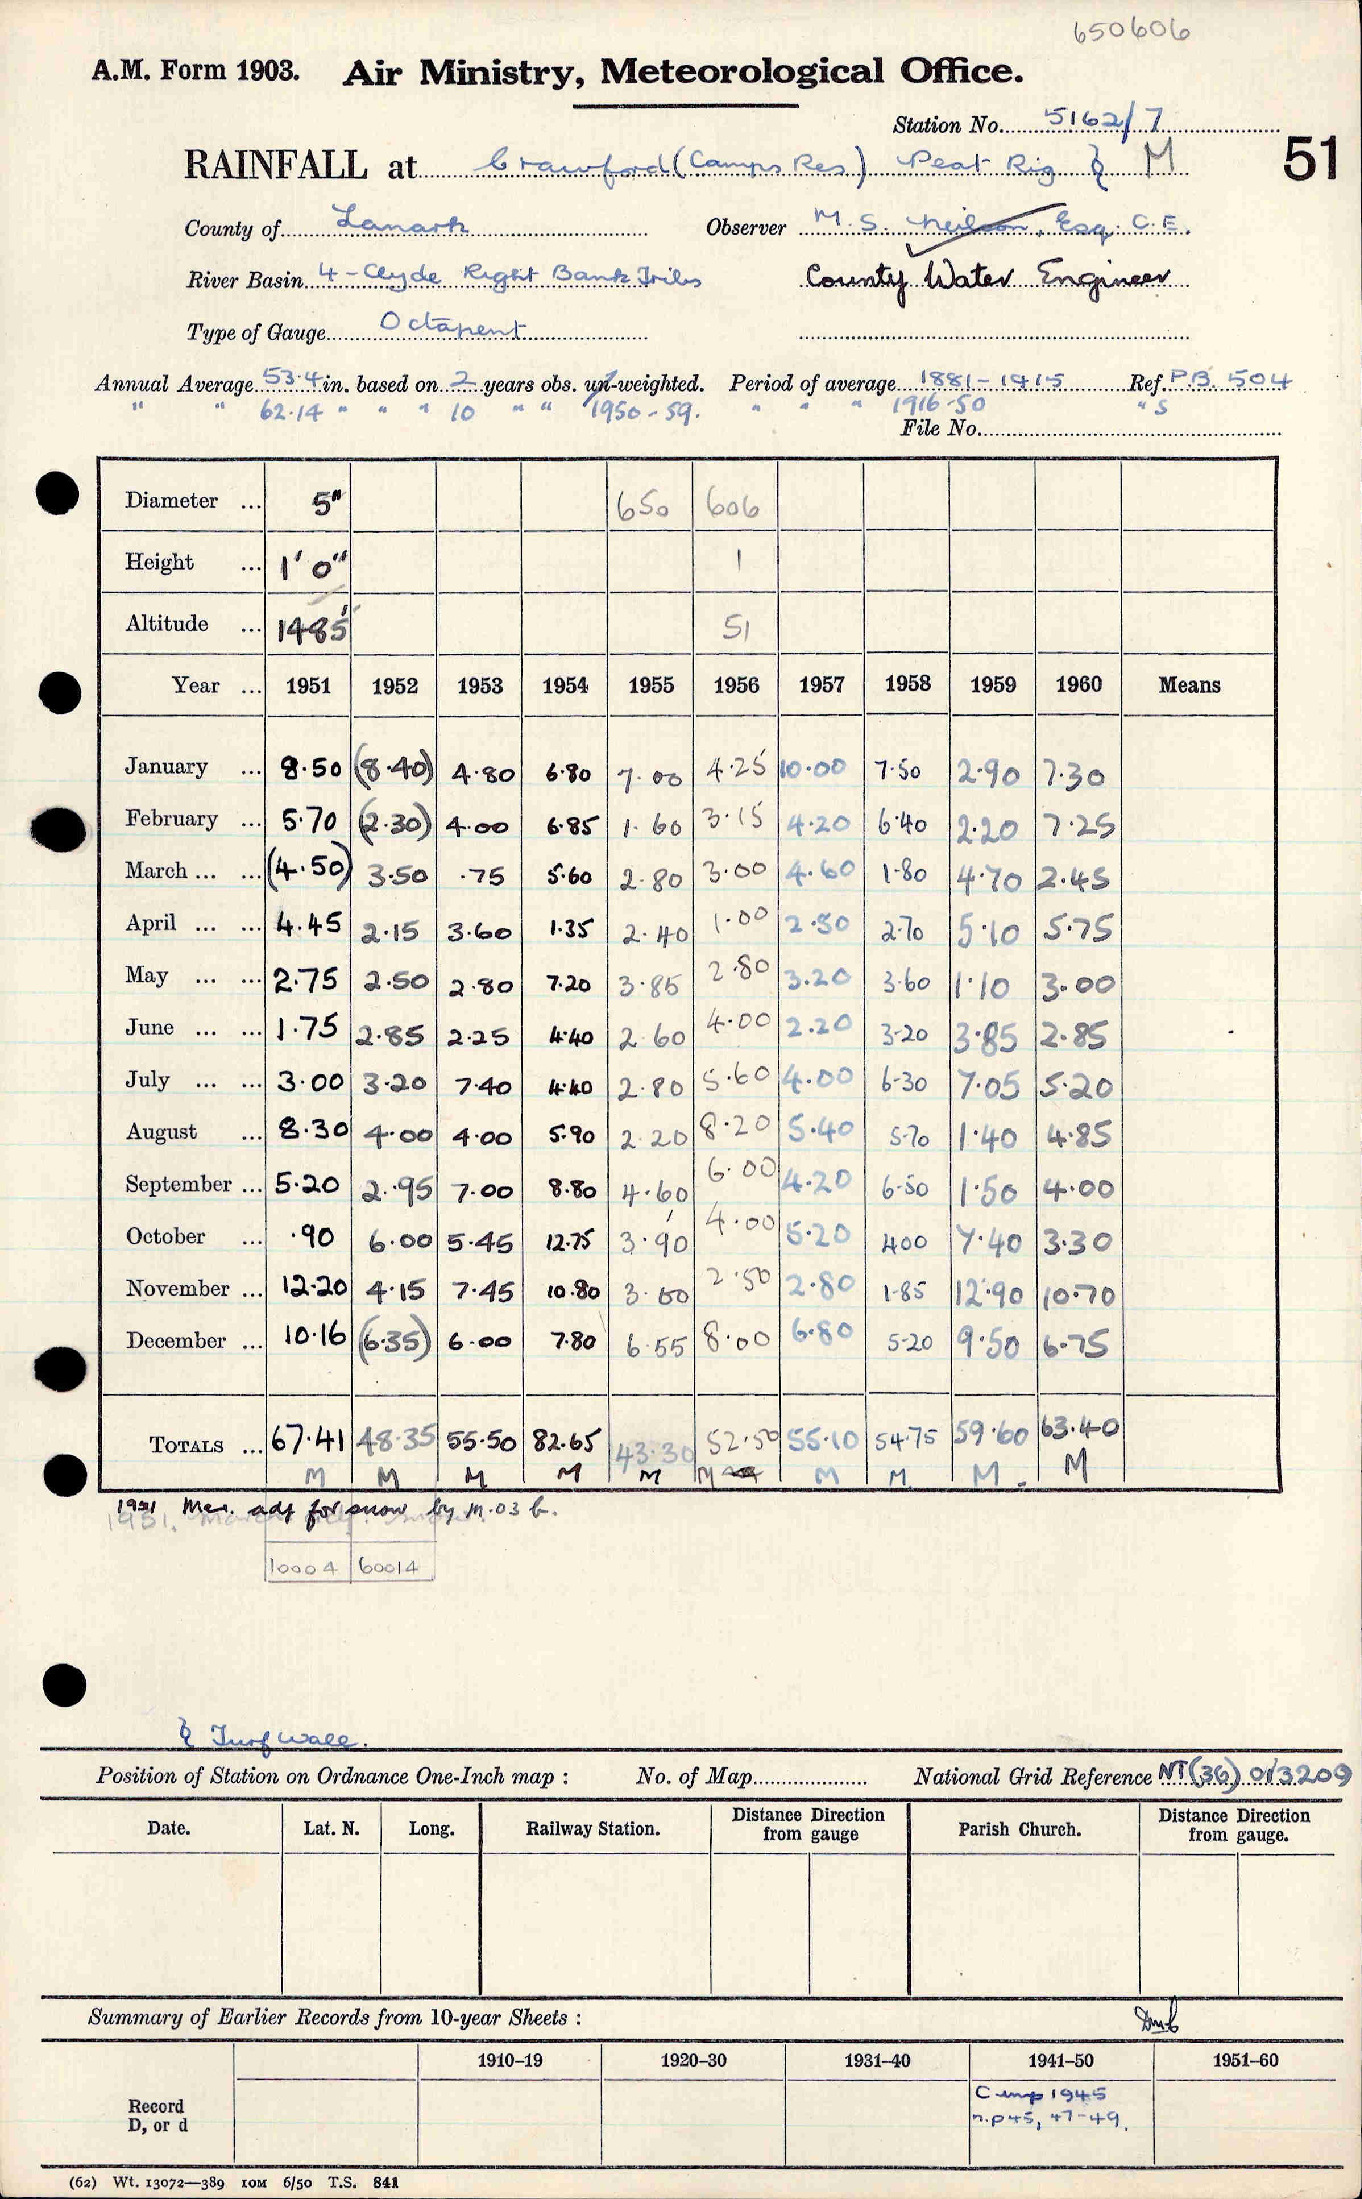 650606
A.M. Form 1903. Air Ministry, Meteorological Office.
Station No. 5162/7
RAINFALL at Crawford (Camps Res) Peat Rig M 51
County of Lanark Observer M. S. Neilson, Esq. C.E.
River Basin 4 - Clyde Right Bank Tribs County Water Engineer
Type of Gauge Octapent
Annual Average 53.4 in. based on 2 years obs. un-weighted. Period of average 1881-1915 Ref. P.B. 504
" " 62.14 " " " 10 " " 1950-59. " " " 1916-50 " S
File No.
Diameter ... 5" 650 606
Height ... 1' 0" 1
Altitude ... 1485' 51
Year ... 1951 1952 1953 1954 1955 1956 1957 1958 1959 1960 Means
January ... 8.50 (8.40) 4.80 6.80 7.00 4.25 10.00 7.50 2.90 7.30
February ... 5.70 (2.30) 4.00 6.85 1.60 3.15 4.20 6.40 2.20 7.25
March ... ... (4.50) 3.50 .75 5.60 2.80 3.00 4.60 1.80 4.70 2.45
April ... ... 4.45 2.15 3.60 1.35 2.40 1.00 2.50 2.70 5.10 5.75
May ... ... 2.75 2.50 2.80 7.20 3.85 2.80 3.20 3.60 1.10 3.00
June ... ... 1.75 2.85 2.25 4.40 2.60 4.00 2.20 3.20 3.85 2.85
July ... ... 3.00 3.20 7.40 4.40 2.80 5.60 4.00 6.30 7.05 5.20
August ... 8.30 4.00 4.00 5.90 2.20 8.20 5.40 5.70 1.40 4.85
September ... 5.20 2.95 7.00 8.80 4.60 6.00 4.20 6.50 1.50 4.00
October ... .90 6.00 5.45 12.75 3.90 4.00 5.20 4.00 7.40 3.30
November ... 12.20 4.15 7.45 10.80 3.00 2.50 2.80 1.85 12.90 10.70
December ... 10.16 (6.35) 6.00 7.80 6.55 8.00 6.80 5.20 9.50 6.75
TOTALS ... 67.41 48.35 55.50 82.65 43.30 52.50 55.10 54.75 59.60 63.40
M M M M M M M M M M
1951 Mar. adj for snow by M.O3 b.
10004 60014
Turf wall.
Position of Station on Ordnance One-Inch map : No. of Map National Grid Reference NT(36) 013209
Date. Lat. N. Long. Railway Station. Distance Direction from gauge Parish Church. Distance Direction from gauge.
Summary of Earlier Records from 10-year Sheets :
1910-19 1920-30 1931-40 1941-50 1951-60
Record
D, or d
Comp 1945
n.p 45, 47-49.
(62) Wt. 13072—389 10M 6/50 T.S. 841